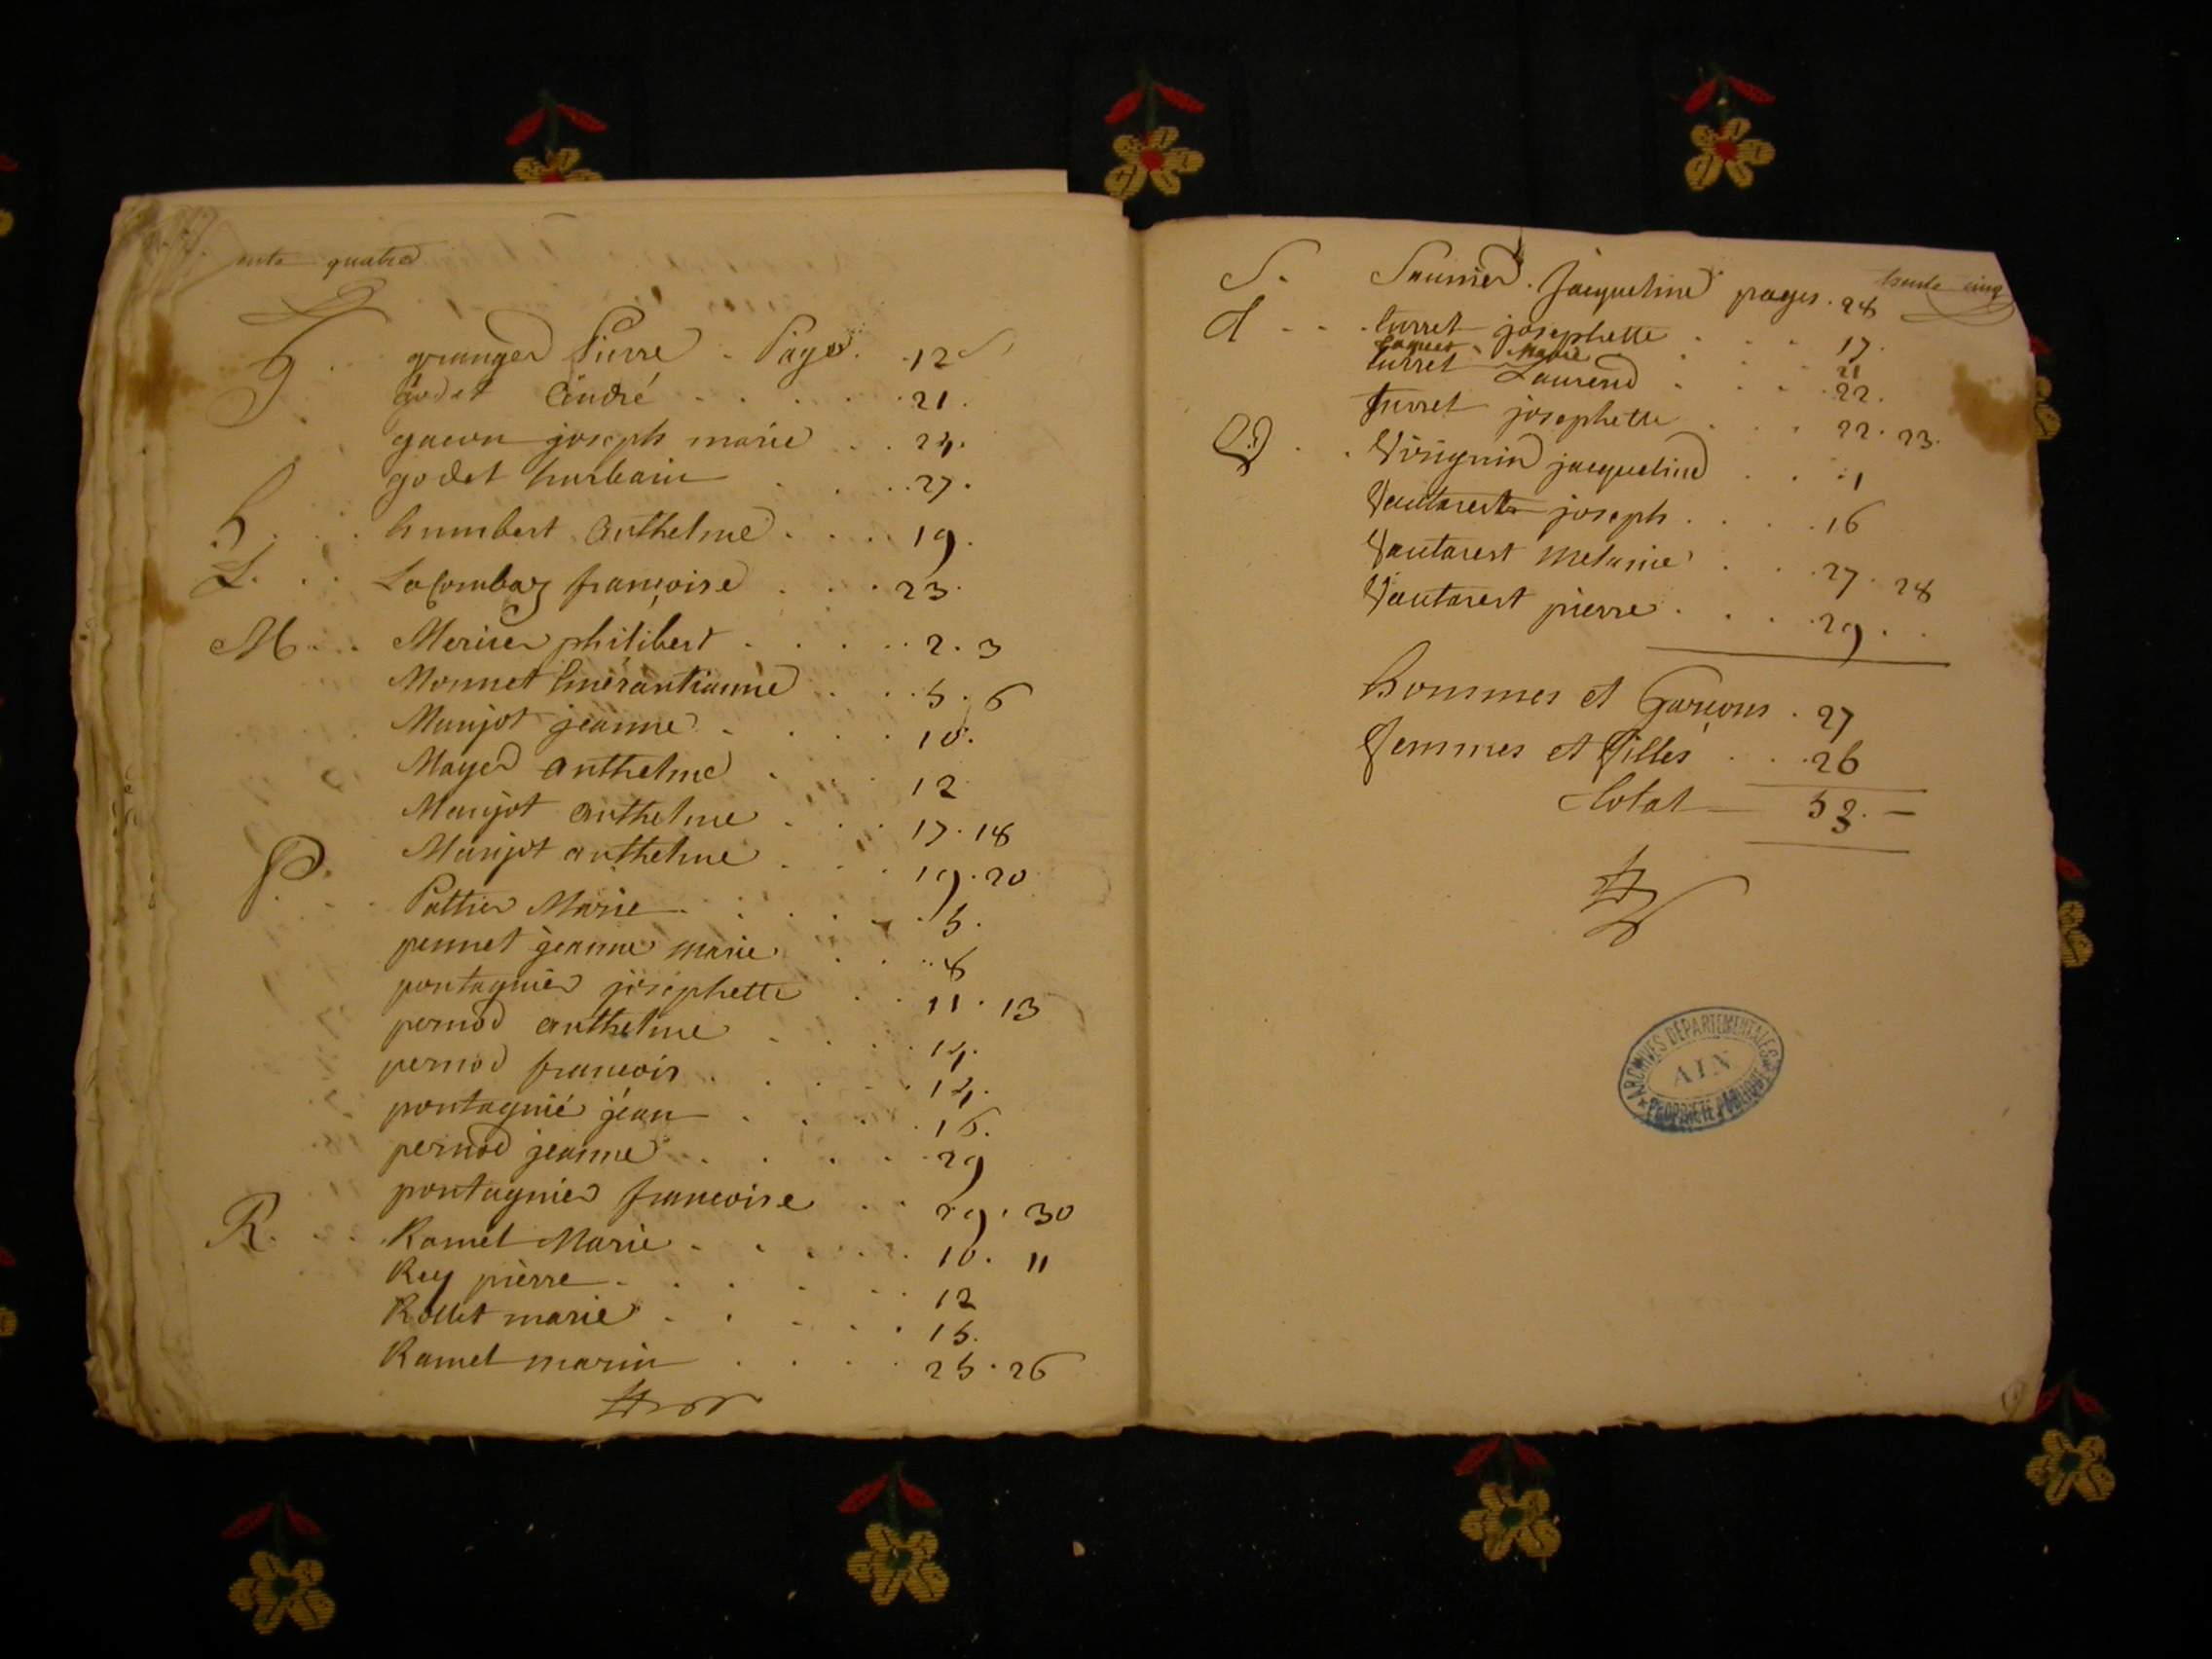 trente quatre
G granger Pierre Pages 12
godet André 21.
gacon joseph marie 24.
godet hurbain 27.
h humbert anthelme 19.
L. Lacombaz françoise 23.
M Meriser philibert 2. 3
Monnet Emérantianne 5. 6
Manjot jeanne 10.
Mayer anthelme 12
Manjot anthelme 17. 18
Manjot anthelme 19. 20
P. Pattier Marie 5.
pennet jeanne marie 8
pontagnier josephette 11. 13
pernod anthelme 14.
pernod francois 14.
pontagnié jean 16.
pernod jeanne 29
pontagnier francoise 29. 30
R. Ramel Marie 10. 11
Rey pierre 12
Rollet marie 15.
Ramel marin 25. 26
trente cinq
S. Saunier Jacqueline pages. 28
t turret josephette 17.
Marie 21
turret Laurend 22.
turret josephette 22. 23.
V Virignin jacqueline 1
Vautarest joseph 16
Vautarest melanie 27. 28
Vautarest pierre 29.
hommes et Garçons. 27
Femmes et Filles 26
Total 53.
ARCHIVES DÉPARTEMENTALES
AIN
PROPRIÉTÉ PUBLIQUE